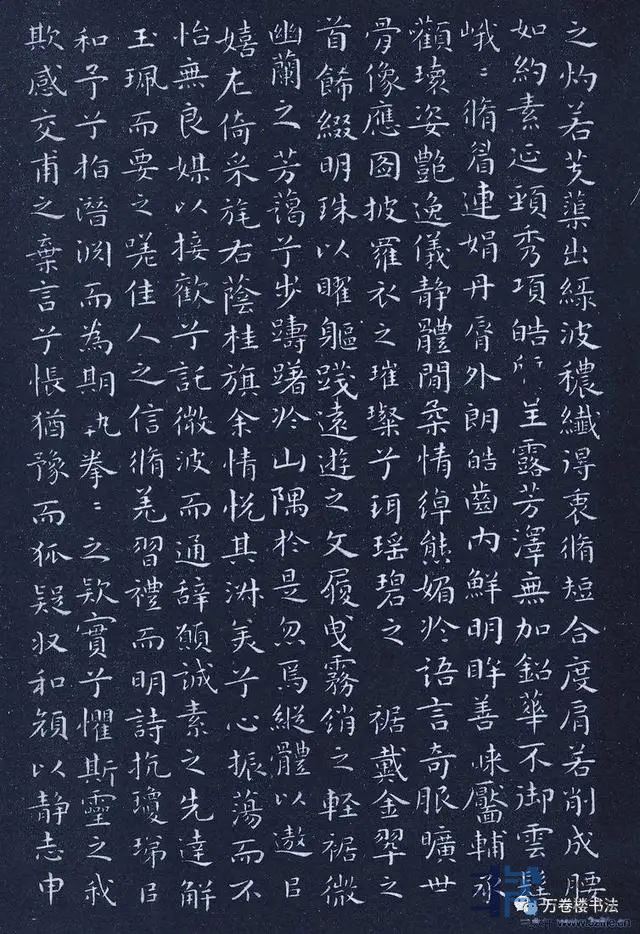 之灼若芙蕖出綠波穠纖得衷脩短合度肩若削成腰
如約素延頸秀項皓呈露芳澤無加鉛華不御雲髻
峨〻脩眉連娟丹脣外朗皓齒內鮮明眸善睞靨輔承
顴瓌姿艷逸儀靜體閒柔情綽態媚於語言奇服曠世
骨像應圖披羅衣之璀璨兮珥瑤碧之 裾戴金翠之
首飾綴明珠以曜軀踐遠遊之文履曳霧綃之輕裾微
幽蘭之芳藹兮步躊躇於山隅於是忽焉縱體以遨㠯
嬉左倚采旄右蔭桂旗余情悅其淑美兮心振蕩而不
怡無良媒以接歡兮託微波而通辭願誠素之先達解
玉珮而要之嗟佳人之信脩羌習禮而明詩抗瓊珶㠯
和予兮指潛淵而為期執拳〻之欵實兮懼斯靈之我
欺感交甫之棄言兮悵猶豫而狐疑収和顏以靜志申
万卷楼书法